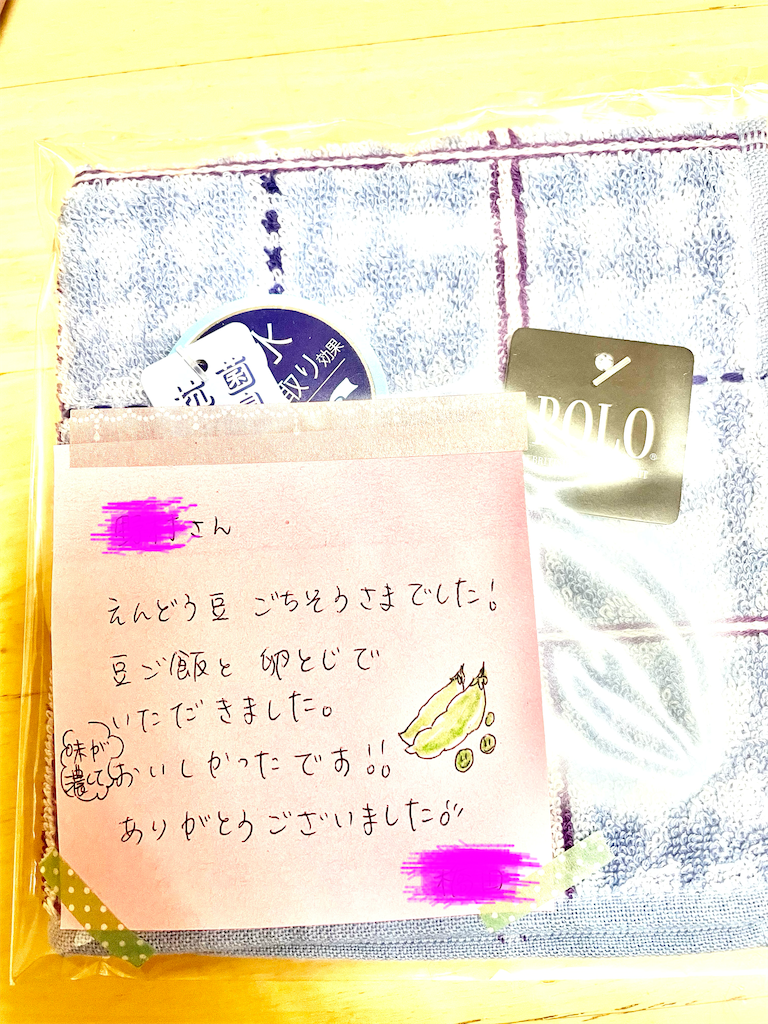 抗菌
水
取り効果
POLO
さん
えんどう豆 ごちそうさまでした!
豆ご飯と 卵とじで
いただきました。
味が
濃くて
おいしかったです!!
ありがとうございました